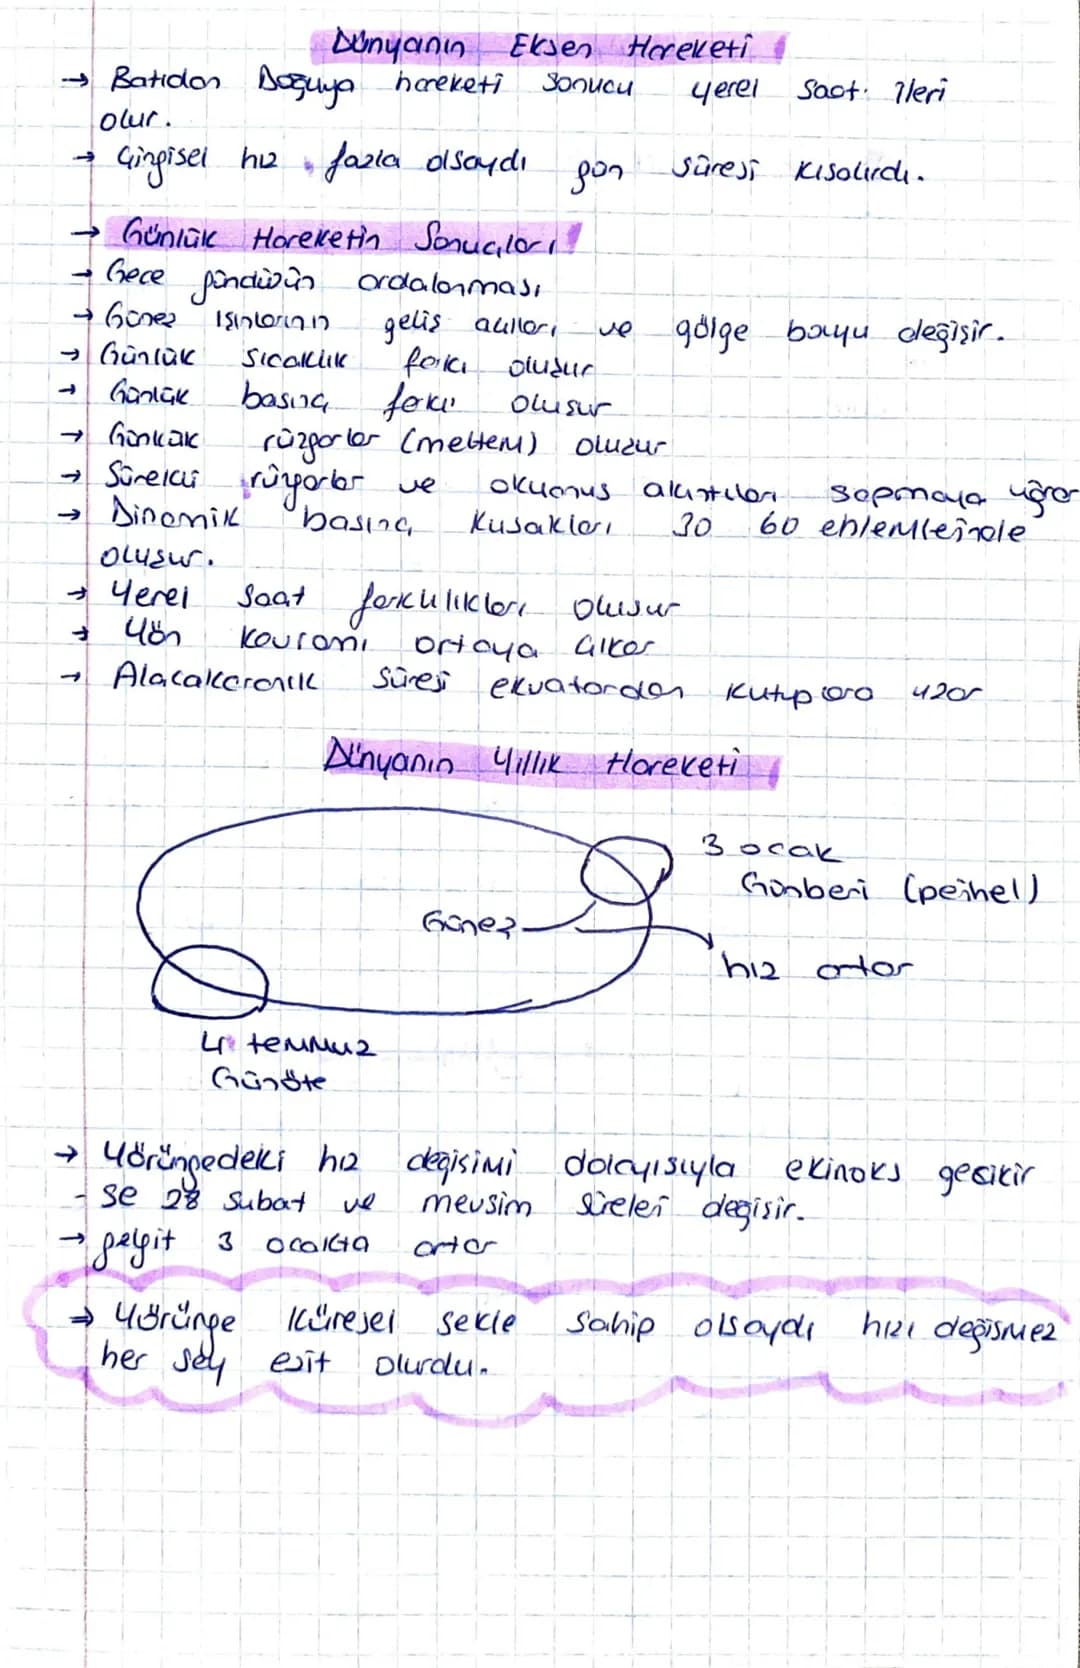 Dünyanın Eksen Hareketi
→ Batıdan Doğuya hareketi sonucu yerel saat ileri
olur.
→ Çizgisel hız fazla olsaydı gün süresi kısalırdı.
→ Günlük Hareketin Sonuçları
→ Gece gündüzün ardalanması
→ Güneş ışınlarının geliş açıları ve gölge boyu değişir.
→ Günlük sıcaklık farkı oluşur
→ Günlük basınç farkı oluşur
→ Günlük rüzgarlar (meltem) oluşur
→ Sürekli rüzgarlar ve okyanus akıntıları sapmaya uğrar
→ Dinamik basınç kuşakları 30 60 enlemlerinde
oluşur.
→ Yerel saat farklılıkları oluşur
→ Yön kavramı ortaya çıkar
→ Alacakaranlık süresi ekvatordan kutuplara uzar
Dünyanın Yıllık Hareketi
3 ocak
Günberi (perihel)
Güneş
hız artar
4 temmuz
Günöte
→ Yörüngedeki hız değişimi dolayısıyla ekinoks gecikir
- se 28 şubat ve mevsim süreleri değişir.
→ gelgit 3 ocakta artar
→ Yörünge küresel şekle sahip olsaydı hızı değişmez
her şey eşit olurdu.